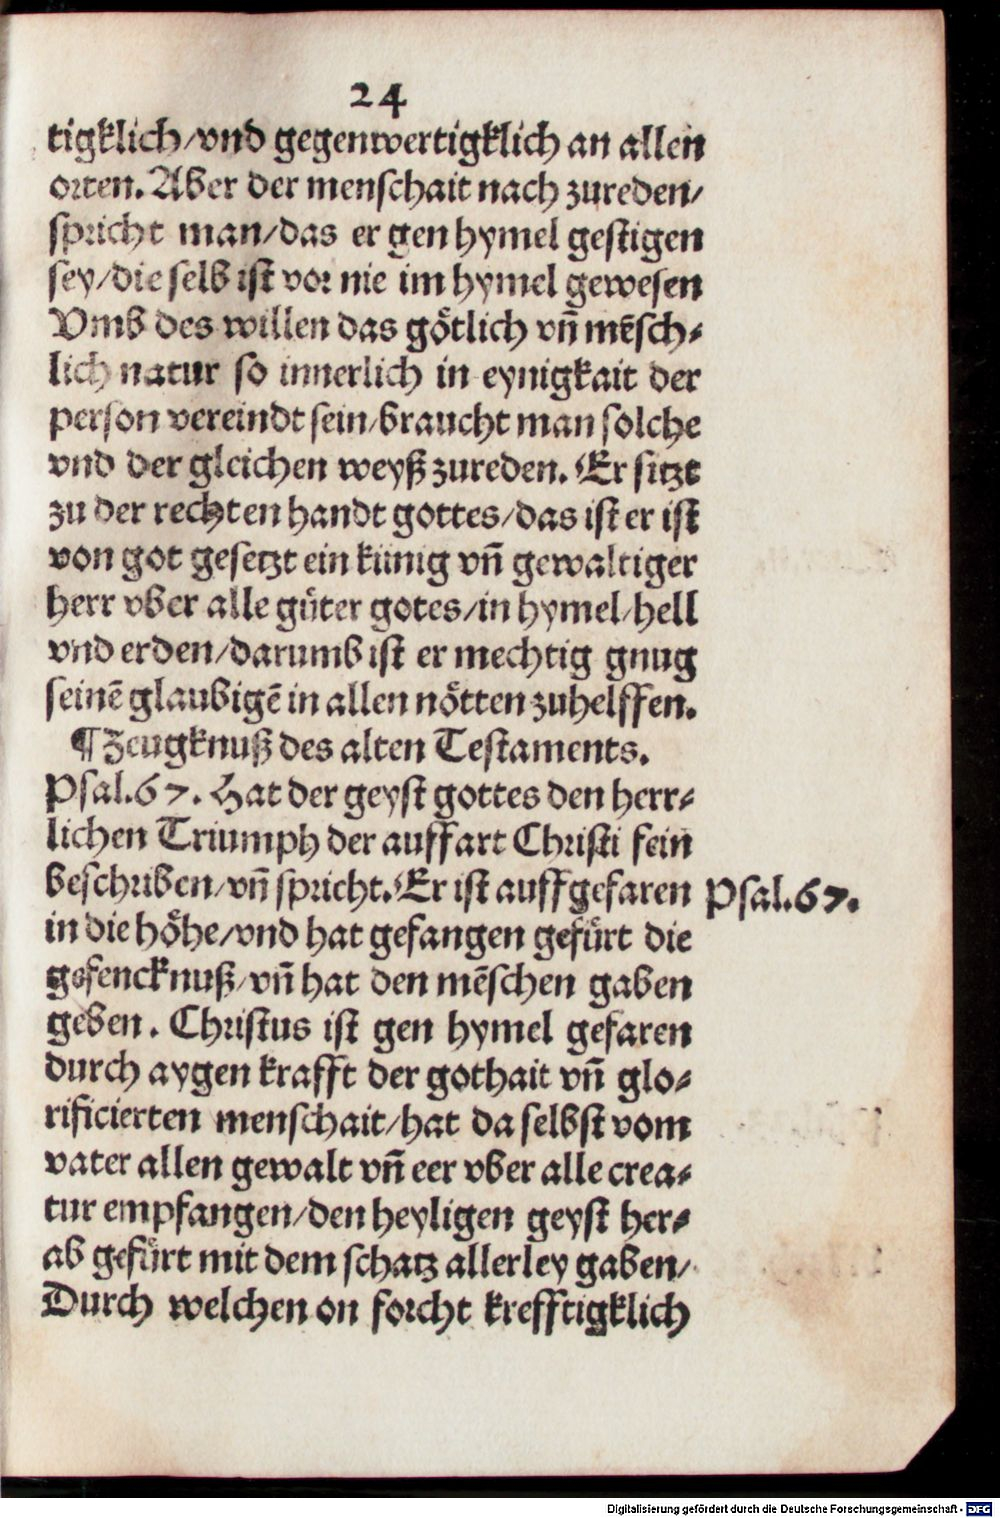 24
tigklich/vnd gegenwertigklich an allen
orten. Aber der menschait nach zureden/
spricht man/das er gen hymel gestigen
sey/die selb ist vor nie im hymel gewesen
Vmb des willen das goͤtlich vñ mẽsch⸗
lich natur so innerlich in eynigkait der
person vereindt sein/braucht man solche
vnd der gleichen weyß zureden. Er sitzt
zu der rechten handt gottes/das ist er ist
von got gesetzt ein künig vñ gewaltiger
herr vber alle guͤter gotes/in hymel/hell
vnd erden/darumb ist er mechtig gnug
seinẽ glaubigẽ in allen noͤtten zuhelffen.
¶ Zeugknuß des alten Testaments.
Psal.67. Hat der geyst gottes den herr⸗
lichen Triumph der auffart Christi fein
beschriben/vñ spricht. Er ist auffgefaren
Psal.67.
in die hoͤhe/vnd hat gefangen gefuͤrt die
gefencknuß/vñ hat den mẽschen gaben
geben. Christus ist gen hymel gefaren
durch aygen krafft der gothait vñ glo⸗
rificierten menschait/hat da selbst vom
vater allen gewalt vñ eer vber alle crea⸗
tur empfangen/den heyligen geyst her⸗
ab gefuͤrt mit dem schatz allerley gaben/
Durch welchen on forcht krefftigklich
Digitalisierung gefördert durch die Deutsche Forschungsgemeinschaft - DFG